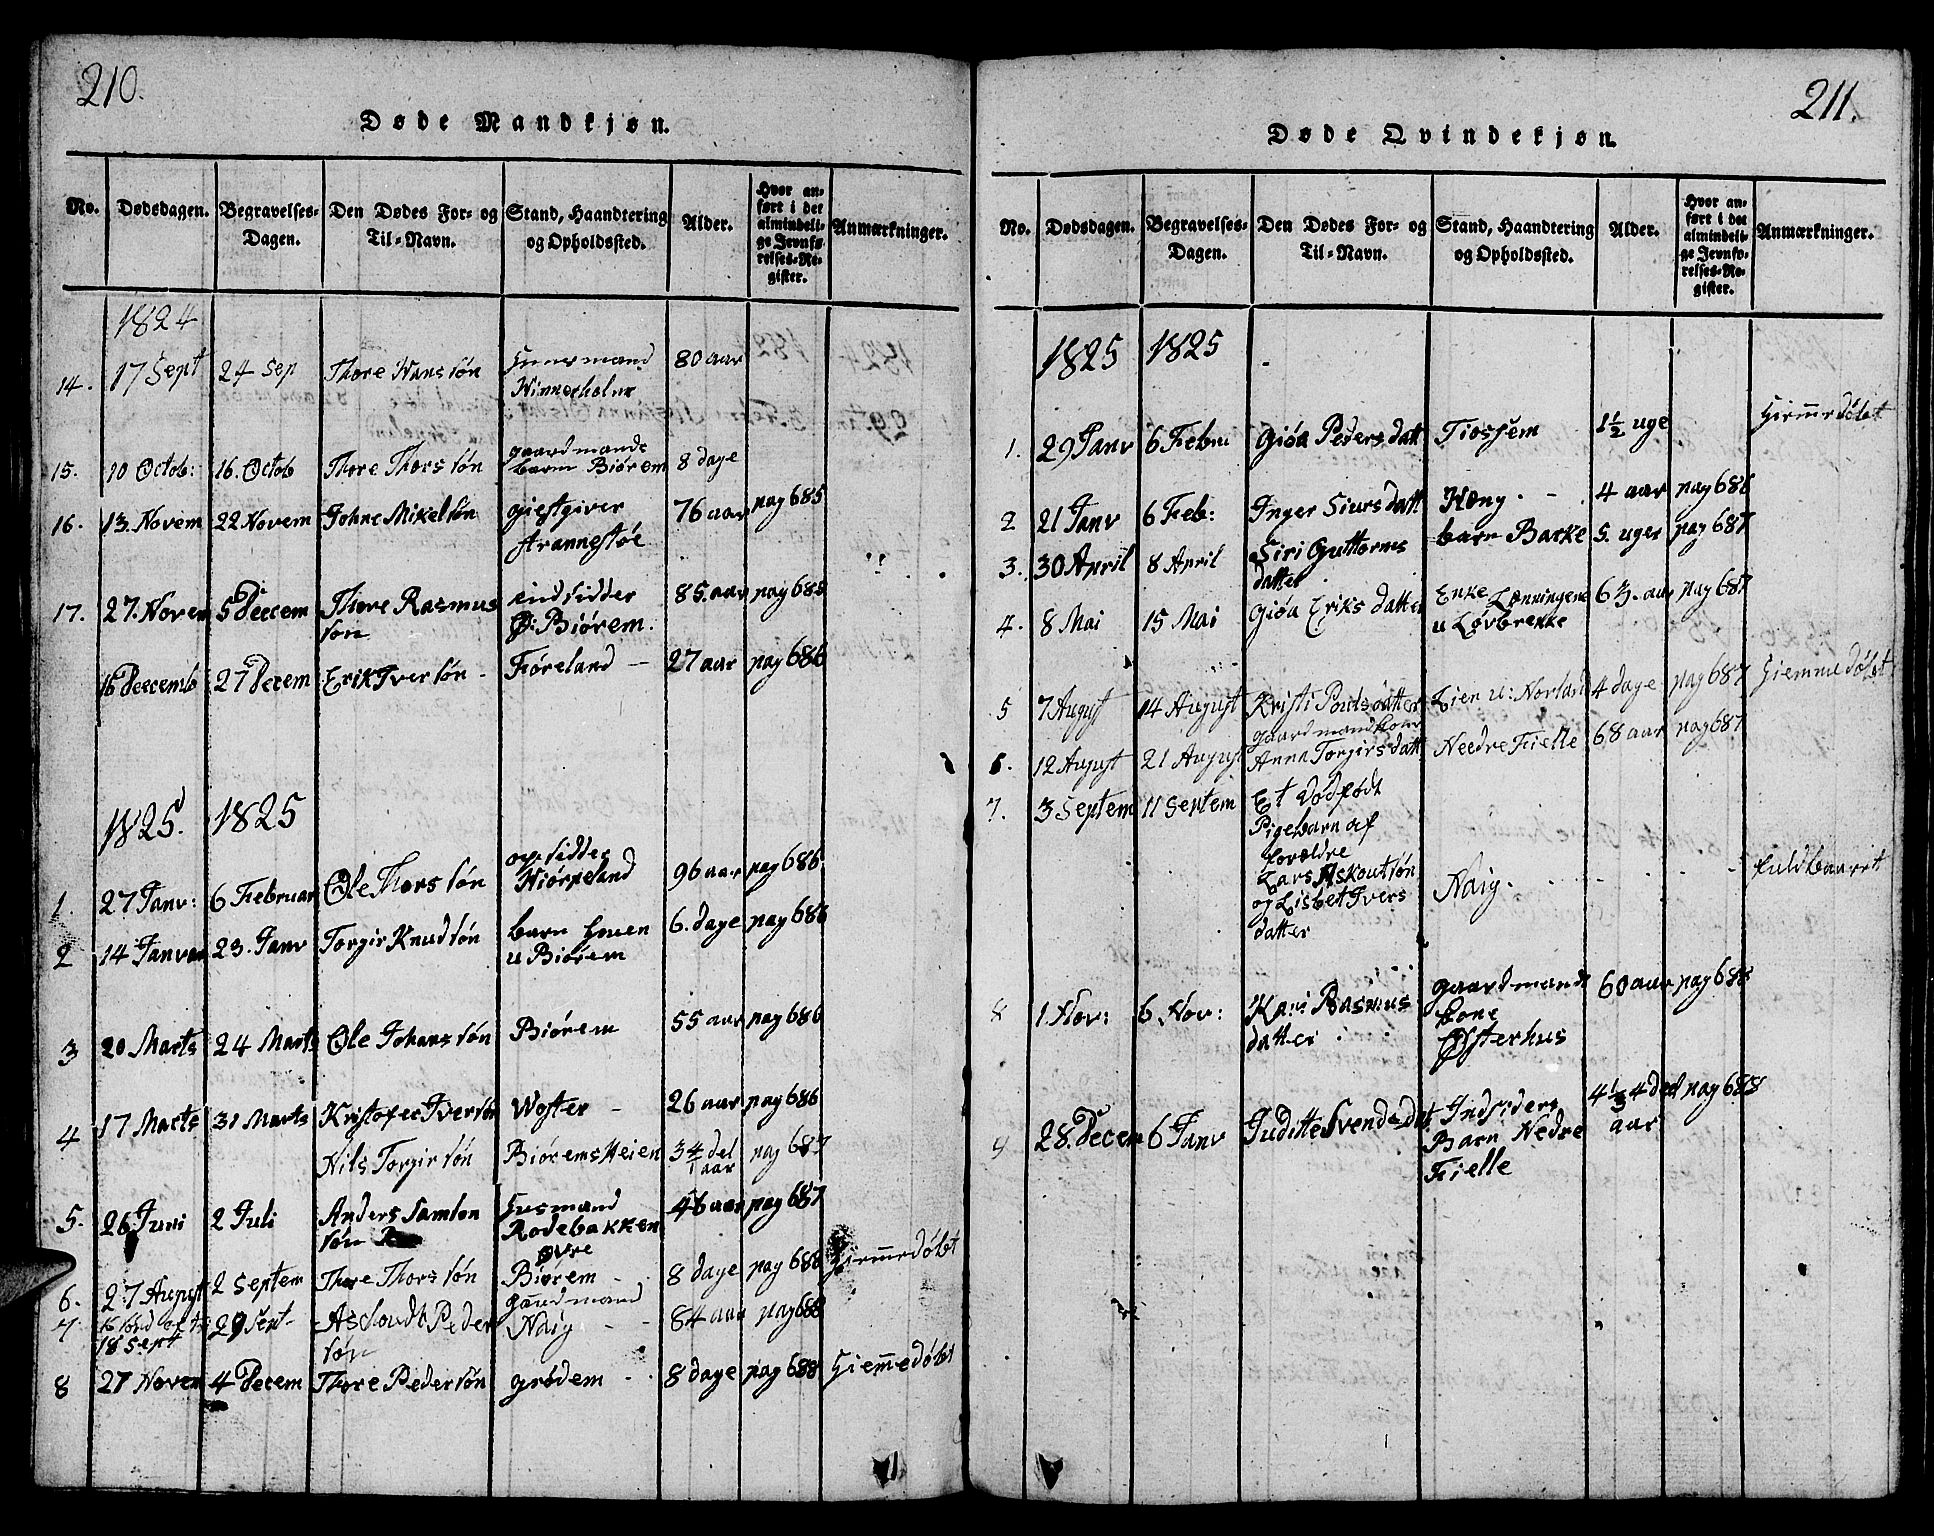 210.
Døde Mandkjøn.
No. Dødsdagen. Begravelses-Dagen. Den Dødes For- og Til-Navn. Stand, Haandtering og Opholdssted. Alder. Hvor anført i det almindelige Jevnførelses-Register. Anmærkninger.
1824
14. 17 Sept 24 Sep Thore Hans søn 80 aar
15. 10 Octob: 16. Octob Thore Thors søn gaardmands barn Biørem 8 dage
16. 13. Novem 22 Novem Johne Mikelsøn giestgiver Arannestøe 76 aar pag 685
17. 27. Novem 5 Decem Thore Rasmus søn indsidder Ø: Biørem. 85. aar pag 685
16 Decemb 27 Decem Erik Iver søn - Fiøreland - 27 aar pag 686
1825. 1825
1. 27 Janv: 6 Februar Ole Thors søn opsidder Niørpeland 96 aar pag 686
2 14 Janvar 23. Janv Torgir Knud søn barn u Biørem 6. dage pag 686
3 20 Marts 24 Marts Ole Johans søn Biørem 55 aar pag 686
4 17 Marts 31 Marts Kristofer Iversøn Woster - 26 aar pag 686
Nils Torgir søn Biørems Heien 3 4/1 del aar pag 687
5. 26 Juni 2 Juli Anders Samson søn Husmand Rodebakken 46 aar pag 687
6. 27 August 2 Septem Thore Thors søn øvre Biørem - 8 dage pag 688 Hiemmedøbt
7 18 Sept 29 Sept - Asloudt Peder søn Gaudmand Naig - - 84 aar pag 688
8 27 Novem 4 Decem Thore Peder søn grødem - - 8 dage pag 688 Hiemmedøbt
211.
Døde Qvindekjøn.
No. Dødsdagen. Begravelses-Dagen. Den Dødes For- og Til-Navn. Stand, Haandtering og Opholdssted. Alder. Hvor anført i det almindelige Jevnførelses-Register. Anmærkninger.
1825 1825
1. 29 Janv 6 Febru Giøa Peders datt Tiossem 1½ uge Hiemmedøbt
2 21 Janv 6 Feb: Inger Siurs datt Hæng. - 4 aar pag 686
3. 30 April 8 April Siri Guttorms datter barn Barke 5. uger pag 687
4. 8 Mai 15 Mai Giøa Eriks datter Enke Lænningene u Løvbrekke 63. aar pag 687
5 7 August 14 August Kristi Pouls datter Lien u: Norland 4 dage pag 687 Hiemmedøbt
6. 12 August 21 August gaardmandkone Anna Torgirs datt Needre Fielle 68 aar pag 687
7. 3 Septem 11 Septem Et dødfødt
Pigebarn af
Forældre
Lars Askoutsøn
og Lisbet Ivers
datter Naig. Fuldbaaret
8 1 Nov: 6 Nov: Kari Rasmus datter gaardmands kone Østerhus 60 aar pag 688
9 28. Decem 6 Janv Juditte Svends dat. Indsiders Barn Nedre Fielle 4⅓ aar pag 688